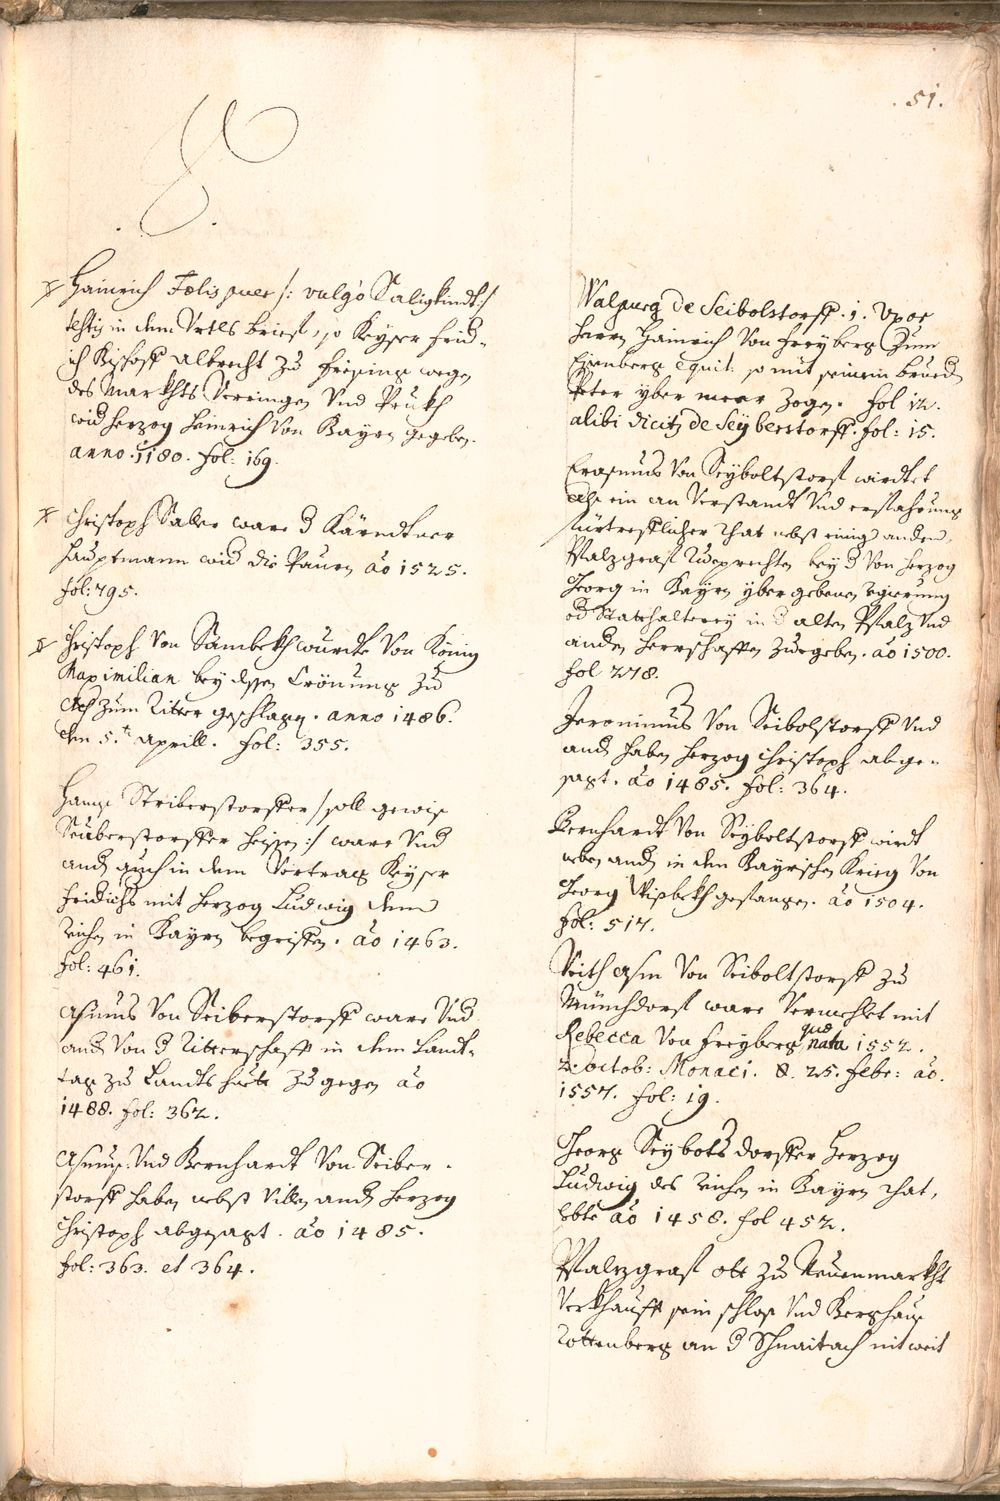 51.
S.
Hainrich Fœlis puer /: vulgò Saligkindt :/
testis in dem Vrtls brieff, so Keyser Frid-
rich Bischoff Albrecht zu Freysing wegen
des Markhts Veringen Vnd Prukh
wid Herzog Heinrich Von Bayrn gegeben.
anno. 1180. fol: 169.
Christoph Saller ware d Kärndtner
Hauptmann wid die Pauren ão 1525.
fol: 795.
Christoph Von Sambekh wurdte Von König
Maximilian bey dessen Crönung zu
Ach zum Ritter geschlagen. anno 1486.
den 5.t Aprill. fol: 355.
Hanns Striberstorffer / soll gewis
Seüberstorffer heissen :/ ware Vnd
andn auch in dem Vertrag Keyser
Fridrichs mit Herzog Ludwig dem
Reichen in Bayrn begriffen. ão 1463.
fol: 461.
Asmus Von Seiberstorff ware Vnd
andn Von d Ritterschafft in dem Landt-
tag zu Landtshuet zugegen ão
1488. fol: 362.
Asmus Vnd Bernhardt Von Seiber-
storff haben nebst Villen andn Herzog
Christoph abgesagt. ão 1485.
fol: 363. et 364.
Walpurg de Seibolstorff. 1. Vxor
Herrn Hainrich Von Freyberg zum
Eysenberg equit: so mit seinem bruedn
Peter yber meer zogen. fol 12.
alibi dicitz de Seyberstorff. fol: 15.
Erasmus Von Seyboltstorff wirdtet
als ein an Verstandt Vnd erfahrung
fürtrefflicher Rhat nebst einigen anden,
Pfalzgraff Rueprechten bey d Von Herzog
Georg in Bayrn ybergebenen Regierung
od Statthalterey in d alten Pfalz Vnd
anden Herrschafften zuegeben. ão 1500.
fol 278.
Jeronimus Von Seibolstorff Vnd
andn haben Herzog Christoph abge-
sagt. ão 1485. fol: 364.
Bernhardt Von Seyboltstorff wirdt
neben andn in dem Bayrischen Krieg Von
Georg Wisbekh gefangen. ão 1504.
fol: 517.
Veith Asm Von Seiboltstorff zu
Münchdorf ware Vermehlet mit
Rebecca Von Freyberg quæ nata 1552.
2. octob: Monaci. &. 25. febr: ão.
1557. fol: 19.
Georg Seybotsdorffer Herzog
Ludwig des Reichen in Bayrn Rhat,
lebte ão 1458. fol 452.
Pfalzgraff Ott zu Neuenmarkht
Verkhaufft sein schloss Vnd Berghaus
Rottenberg an d Schnaitach nit weit